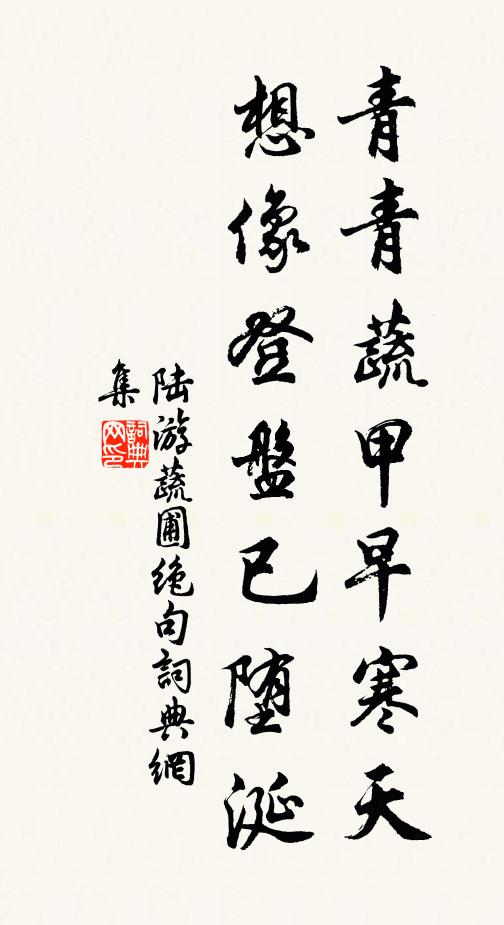 青青蔬甲早寒天
想像登盤已堕涎
陆游蔬圃绝句詞典網
集
詞典
网印